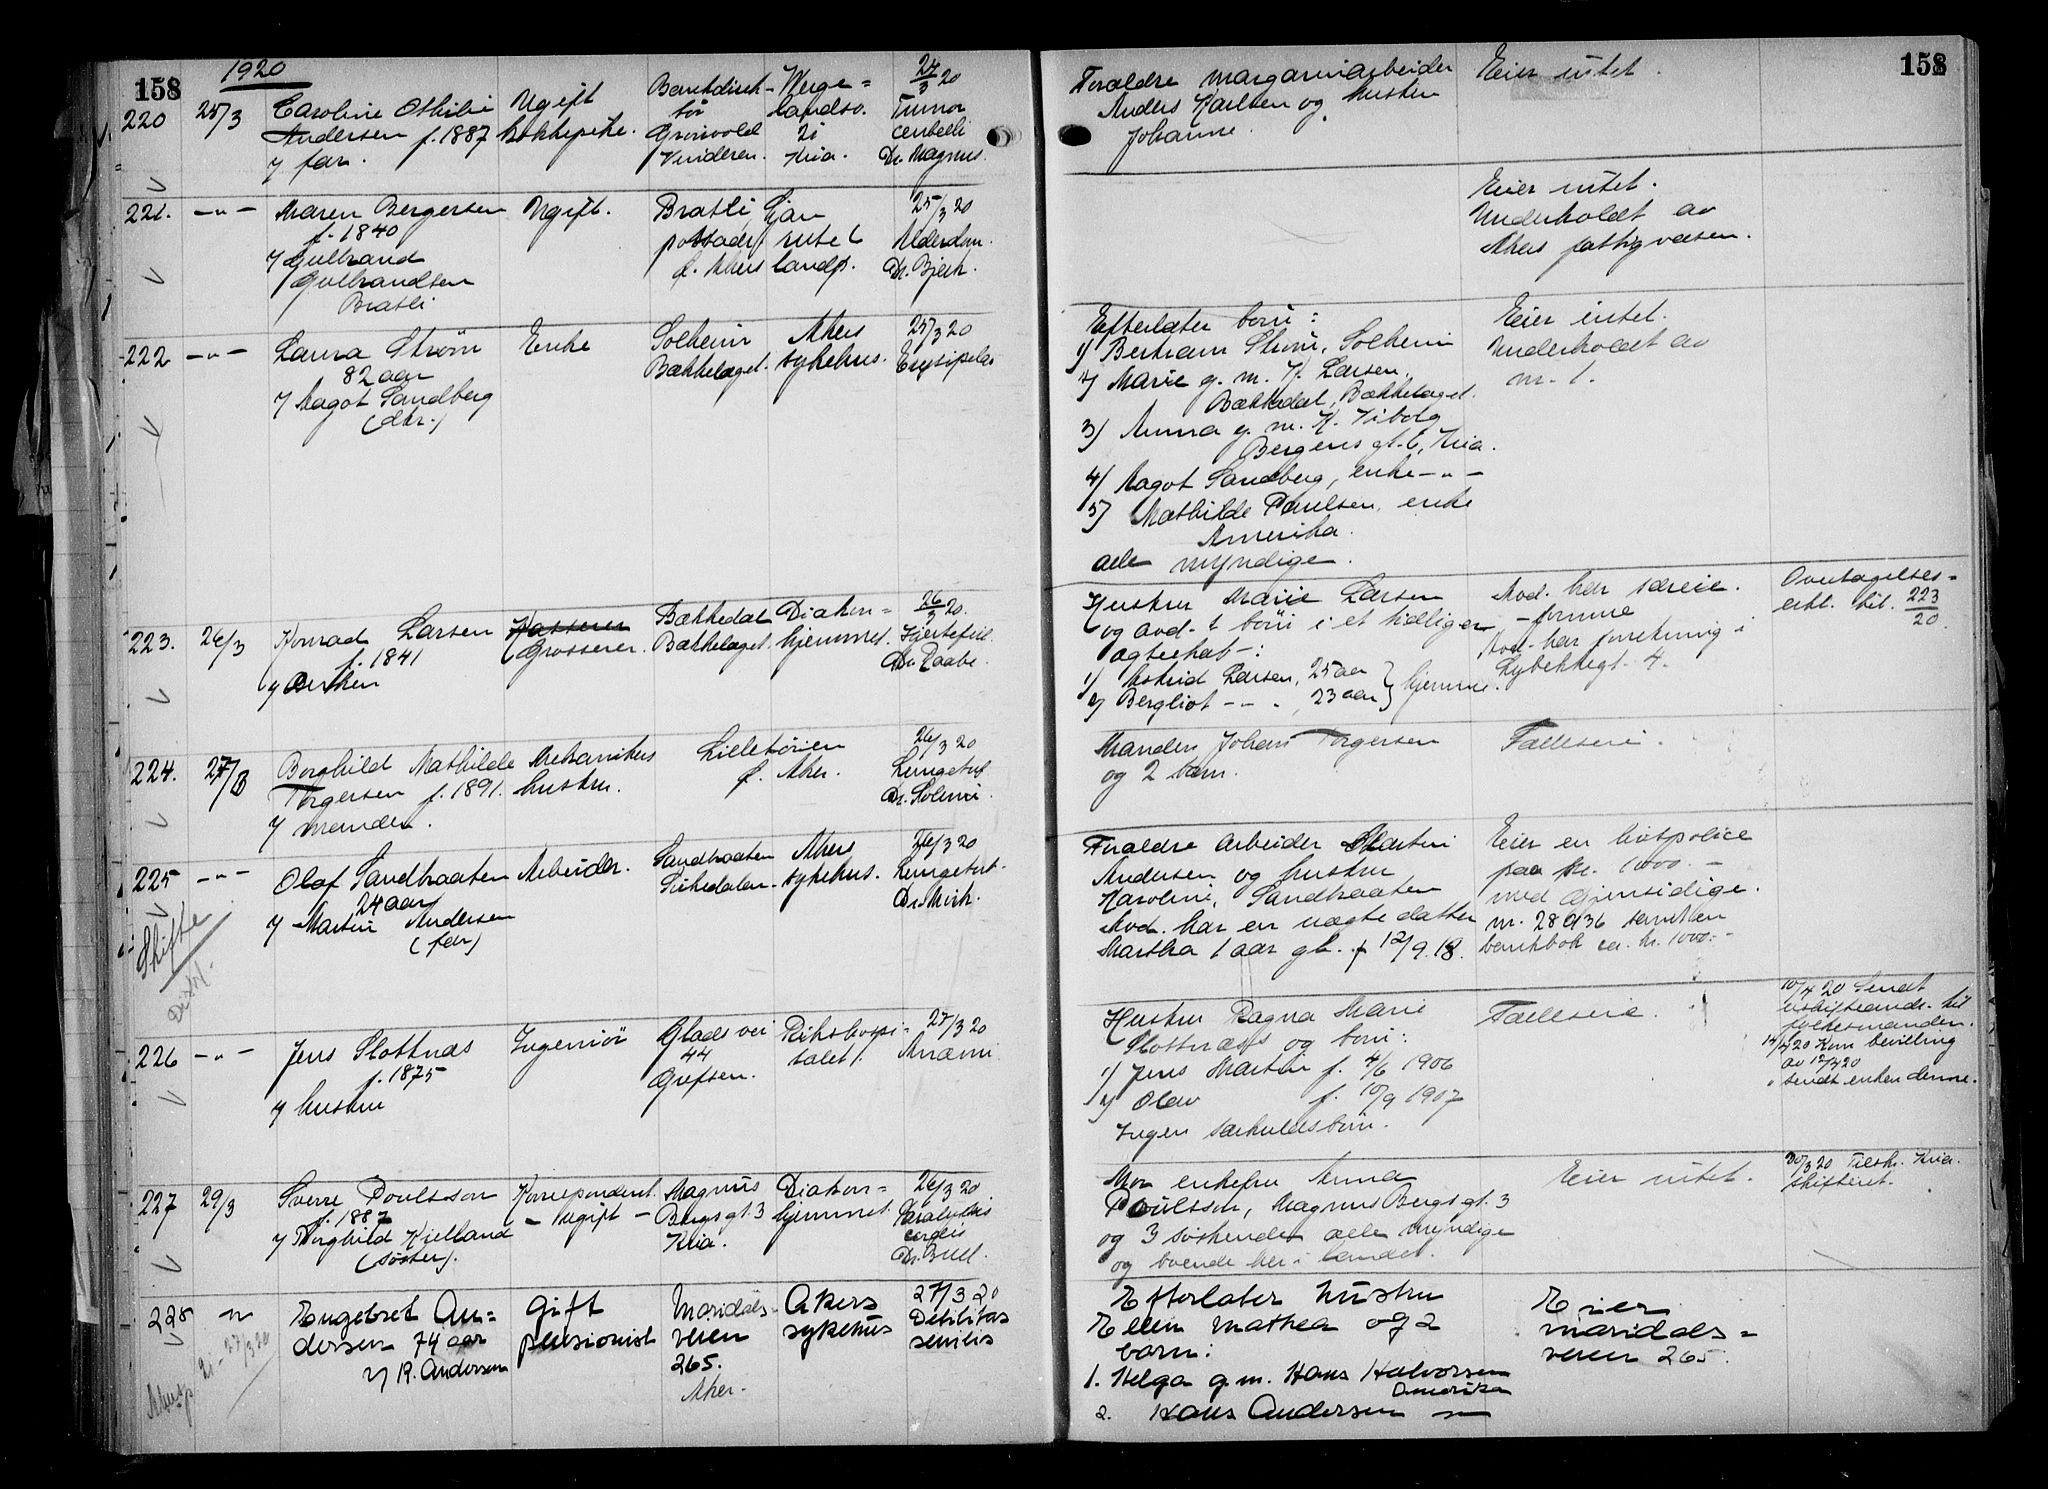 158
1920
158
220
25/3
Caroline Othilie
Andersen f. 1887
v/ far.
Ugift
kokkepike.
Grønvold
Vinderen.
Werge=
landsv.
Kria.
24/3 20
Tumor
cerebelli
Dr. Magnus.
Forældre margarinarbeider
Anders Karlsen og hustru
Johanne.
Eier intet.
221.
-"-
Maren Bergersen
f. 1840
v/ Gulbrand
Gulbrandsen
Bratli
Ugift.
Bratli
Ljan
25/3 20
Alderdom.
Eier intet.
Underholdt av
Akers fattigvæsen.
222
-"-
Laura Strøm
82 aar
v/ Aagot Sandberg
(dtr.)
Enke
Solheim
Bækkelaget.
Akers
sykehus.
25/3 20
Erysipelas
Efterlater børn:
1) Bertram Strøm, Solheim
2) Marie g. m. K. Larsen.
Bækkedal, Bækkelaget.
3) Anna g. m. K. Viborg
Bergens gt. 6, Kria.
4) Aagot Sandberg, enke -"-
5) Mathilde Paulsen, enke
Amerika.
alle myndige.
Eier intet.
Underholdt av
nr. 1.
223.
26/3
Konrad Larsen
f. 1841
Kasserer
Grosserer.
Bækkedal
Bækkelaget.
Diakon=
hjemmet.
26/3 20.
Hjertefeil
Dr. Raabe.
Hustru Marie Larsen
og avd. børn i et tidligere
egteskab:
1) Astrid Larsen, 25 aar
2) Bergliot -"-, 23 aar } hjemme.
Avd. har særeie.
- formue
Avd. har forretning i
Lybekkergt. 4.
Overtagelses=
erkl. bil. 223/20
224.
27/3
Borghild Mathilde
Torgersen f. 1891.
v/ manden.
Mekanikers
hustru.
Lilletorien
Ø. Aker.
26/3 20
Lungetub.
Manden Johan Torgersen
og 2 barn.
Fælleseie.
225
-"-
Skifte
Olaf Sandbraaten
24 aar
v/ Martin Andersen
(far)
Arbeider.
Sandbraaten
Sørkedalen.
Akers
sykehus.
26/3 20
Lungetub.
Forældre arbeider Martin
Andersen og hustru
Karoline, Sandbraaten
Avd. har en uægte datter
Martha 1 aar gl. f. 12/9. 18.
Eier en livspolice
paa kr. 1000.-
med Gjensidige.
nr. 28936 samt en
bankbok ca. kr. 1000.-
226
-"-
Jens Slottnæs
f. 1875
v/ hustru
Ingeniør
Glads vei
44
Grefsen.
Rikshospi=
talet.
27/3 20
Anæmi
Hustru Ragna Marie
Slottnæss og børn:
1) Jens Martin f. 4/6 1906
2) Olav f. 10/9 1907
Ingen særkuldsbørn.
Fælleseie.
10/4 20 Sendt
uskifteands. til
14/4 20 Kom bevilling
av 12/4 20
sendt enken denne.
227
29/3
Sverre Poulsson
f. 1887
v/ Borghild Kielland
(søster).
Korrespondent.
- ugift -
Magnus
Bergs gt. 3
Kria.
Diakon=
hjemmet.
26/3 20
Paralysis
cordis
Dr. Bull.
Mor enkefru Anna
Poulsson, Magnus Bergs gt. 3
og 3 søskende alle myndige
og boende her i landet.
Eier intet.
30/3 20 Tilskr. Kria.
skifteret.
228
"
Engebret An=
dersen 74 aar
v/ R. Andersen
Gift
pensionist
Maridals=
veien
265.
Aker.
Akers
sykehus
27/3 20
Debilitas
senilis
Efterlater hustru
Ellen Mathea og 2
barn:
1. Helga g. m. Hans Halvorsen
Amerika
2. Hans Andersen "
Eier
maridals=
veien 265.